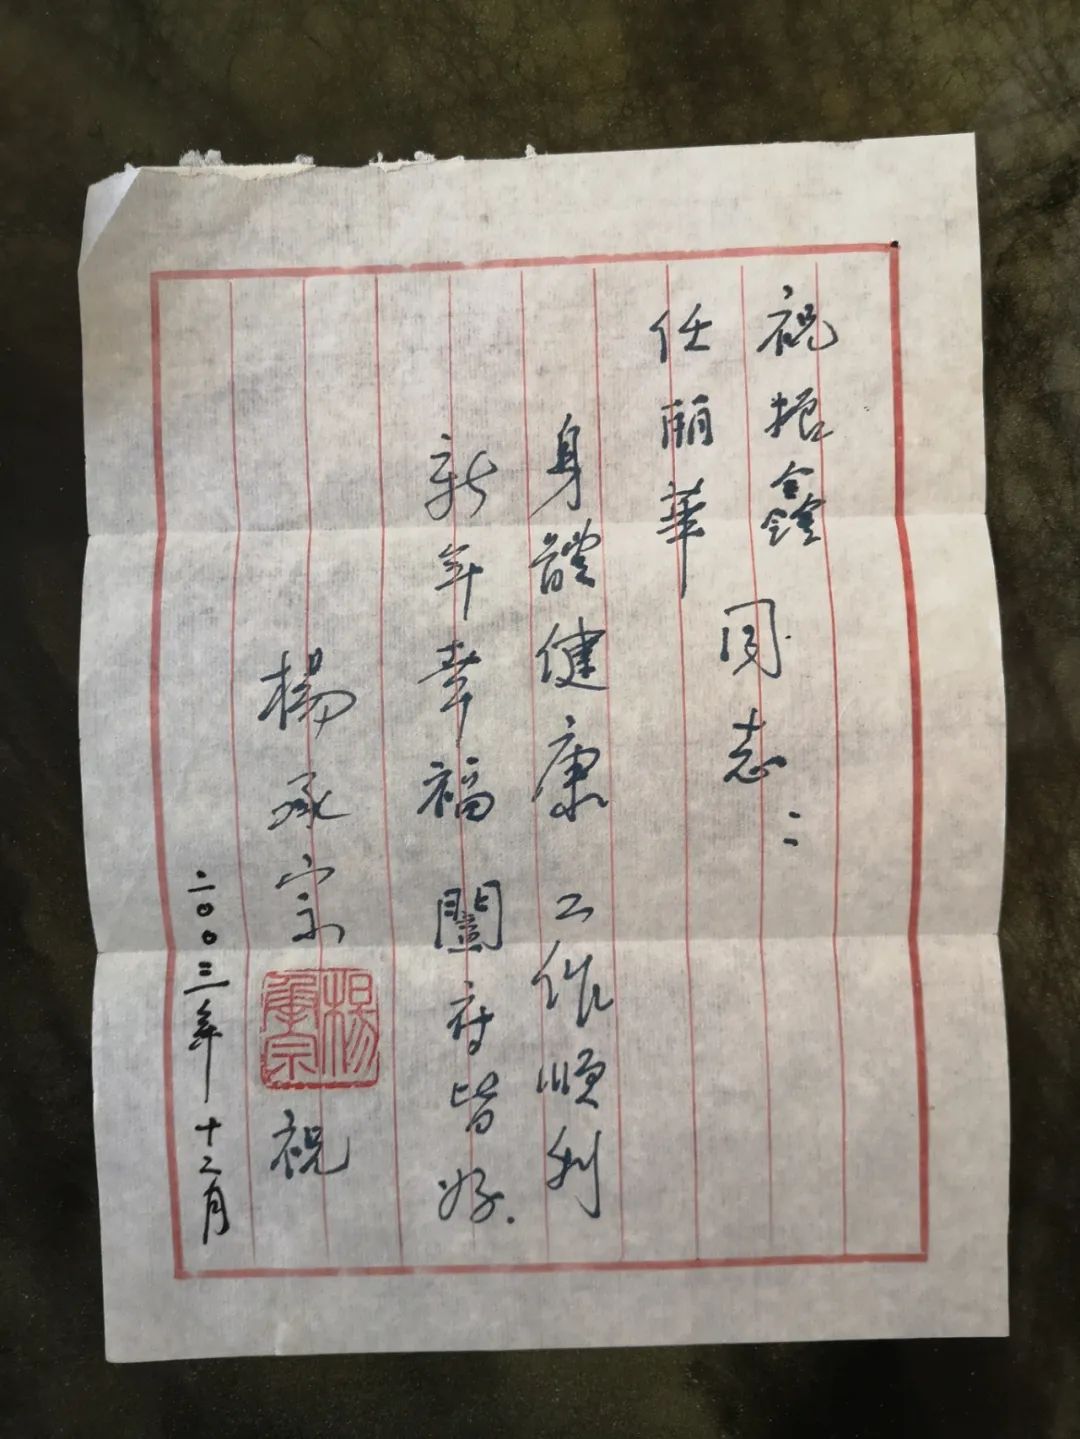 祝振鑫
任丽華
同志:
身體健康 工作順利
新年幸福 闔府皆好.
楊承宗
楊承宗
祝
二00三年十二月